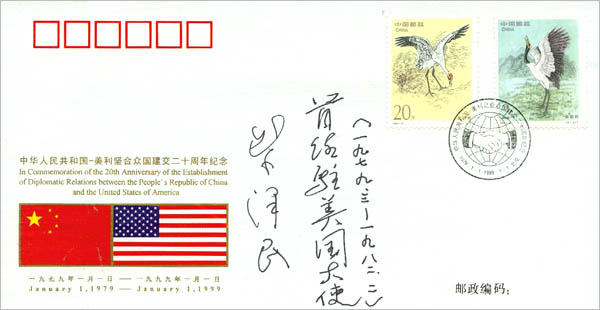 中国邮政
CHINA
20分
中国邮政
CHINA
中华人民共和国-美利坚合众国建交二十周年纪念
In Commemoration of the 20th Anniversary of the Establishment
of Diplomatic Relations between the People's Republic of China
and the United States of America
一九七九年一月一日 —— 一九九九年一月一日
January 1,1979 —— January 1,1999
(一九七九.三—一九八二.二)
首任驻美国大使
柴泽民
邮政编码: